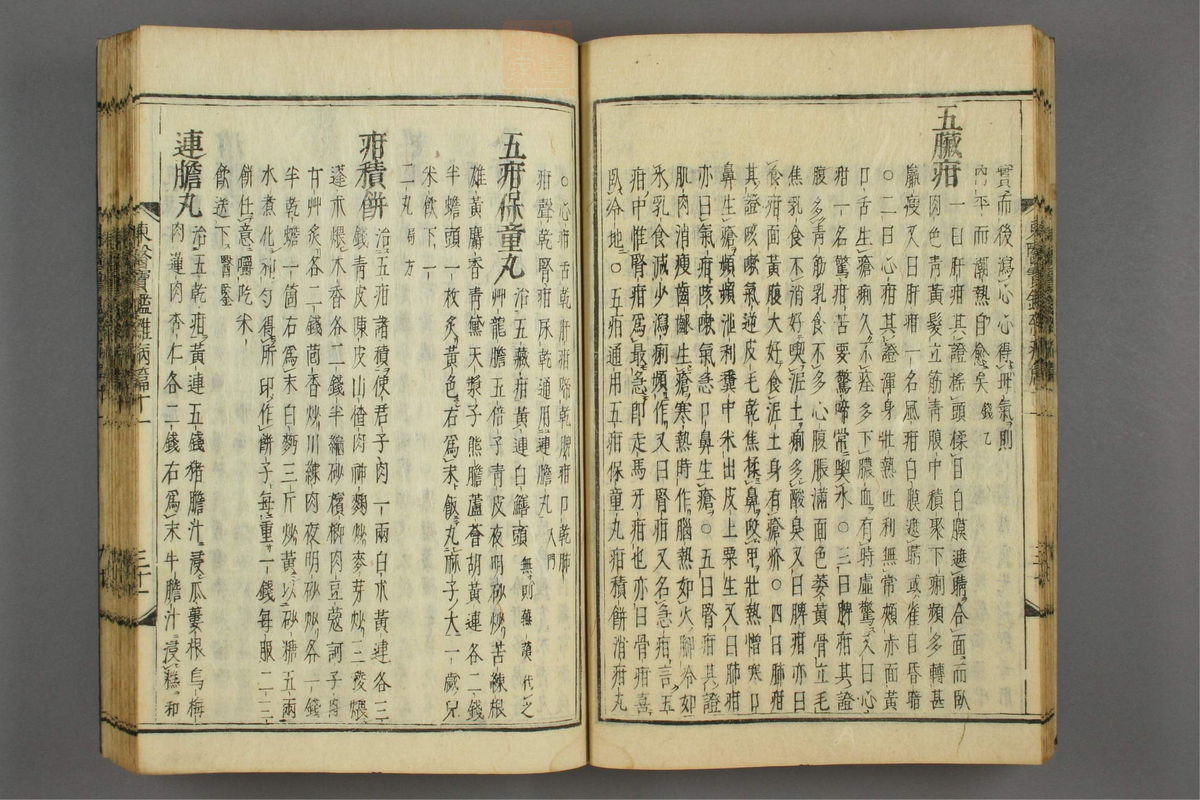 實而後瀉心心得母氣則
內平而潮熱自愈矣 錢乙
五臟疳
一曰肝疳其證搖頭揉目白膜遮睛合面而臥
肉色靑黃髮立筋靑腹中積聚下痢頻多轉甚
羸瘦又曰肝疳一名風疳白膜遮睛或雀目昏暗
○二曰心疳其證渾身壯熱吐利無常頰赤面黃
口舌生瘡痢久不痊多下膿血有時虛驚又曰心
疳一名驚疳苦要驚啼常喫水○三曰脾疳其證
腹多靑筋乳食不多心腹脹滿面色萎黃骨立毛
焦乳食不消好喫泥土痢多酸臭又曰脾疳亦曰
食疳面黃腹大好食泥土身有瘡疥○四曰肺疳
其證咳嗽氣逆皮毛乾焦揉鼻咬甲壯熱憎寒口
鼻生瘡頻頻泄利糞中米出皮上粟生又曰肺疳
亦曰氣疳咳嗽氣急口鼻生瘡○五曰腎疳其證
肌肉消瘦齒齗生瘡寒熱時作腦熱如火脚冷如
氷乳食減少瀉痢頻作又曰腎疳又名急疳言五
疳中惟腎疳爲最急卽走馬牙疳也亦曰骨疳喜
臥冷地○五疳通用五疳保童丸疳積餠消疳丸
○心疳舌乾肝疳啼乾脾疳口乾肺
疳聲乾腎疳尿乾通用連膽丸 入門
五疳保童丸
治五藏疳黃連白鱔頭 無則蕪荑代之
草龍膽五倍子靑皮夜明砂炒苦練根
雄黃麝香靑黛天漿子熊膽蘆薈胡黃連各二錢
半蟾頭一枚炙黃色右爲末飯丸麻子大一歲兒
米飮下一
二丸 局方
疳積餠
治五疳諸積使君子肉一兩白朮黃連各三
錢靑皮陳皮山楂肉神麴炒麥芽炒三稜煨
蓬朮煨木香各二錢半縮砂檳榔肉豆蔻訶子肉
甘艸炙各二錢茴香炒川練肉夜明砂炒各一錢
半乾蟾一箇右爲末白麪三斤炒黃以砂糖五兩
水煮化和勻得所印作餠子每重一錢每服二三
餠任意嚼吃米
飮送下 醫鑒
連膽丸
治五乾疳黃連五錢猪膽汁浸瓜蔞根烏梅
肉蓮肉杏仁各二錢右爲末牛膽汁浸糕和
東醫寶鑑雜病篇十一
三十一